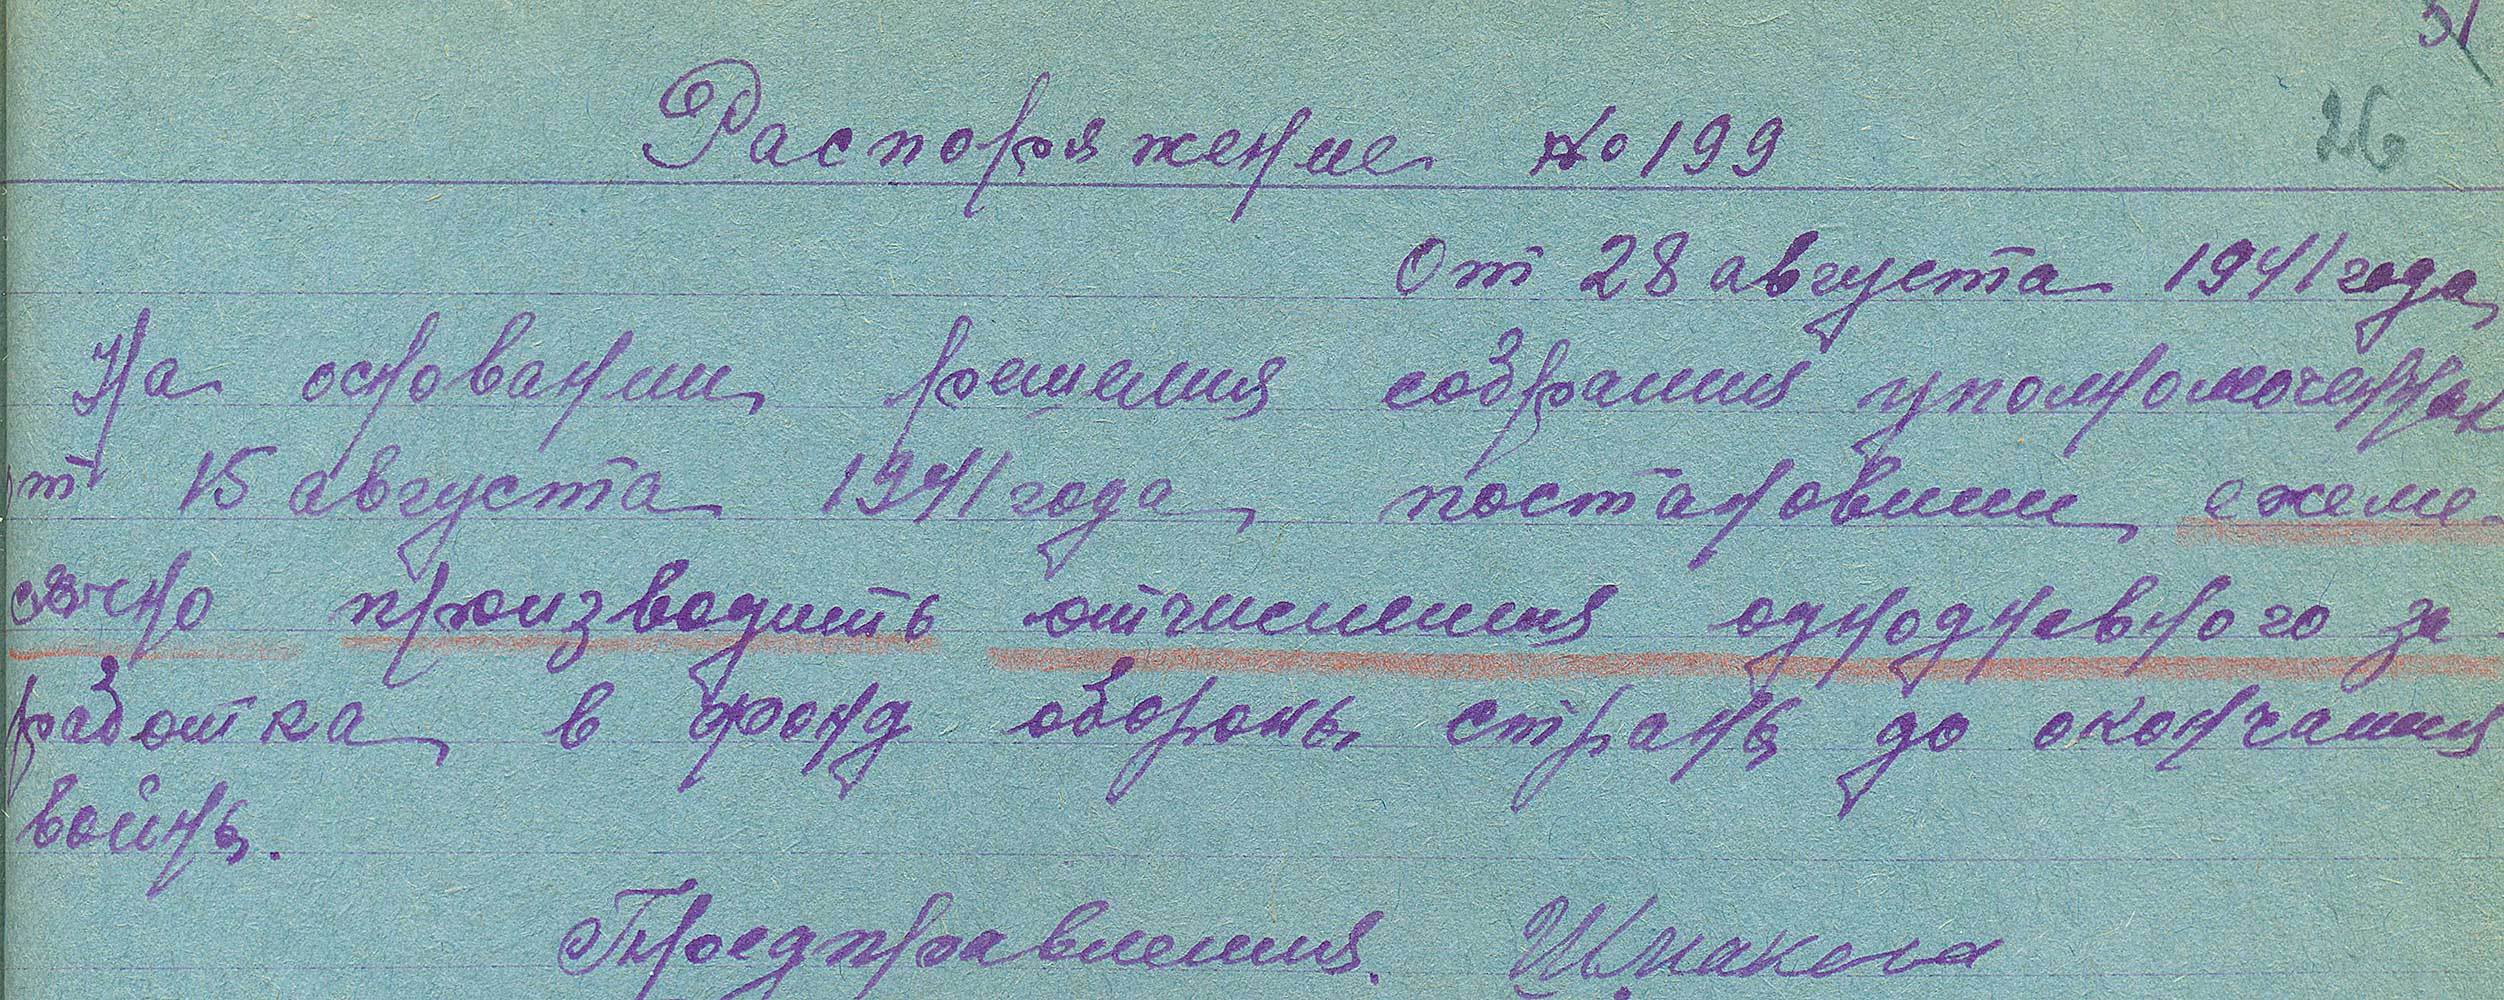 31
26
Распоряжение № 199
От 28 августа 1941 года
На основании решения собрания уполномоченных
от 15 августа 1941 года постановили ежеме-
сячно производить отчисления однодневного за-
работка в фонд обороны страны до окончания
войны.
Предправления. Шмакова